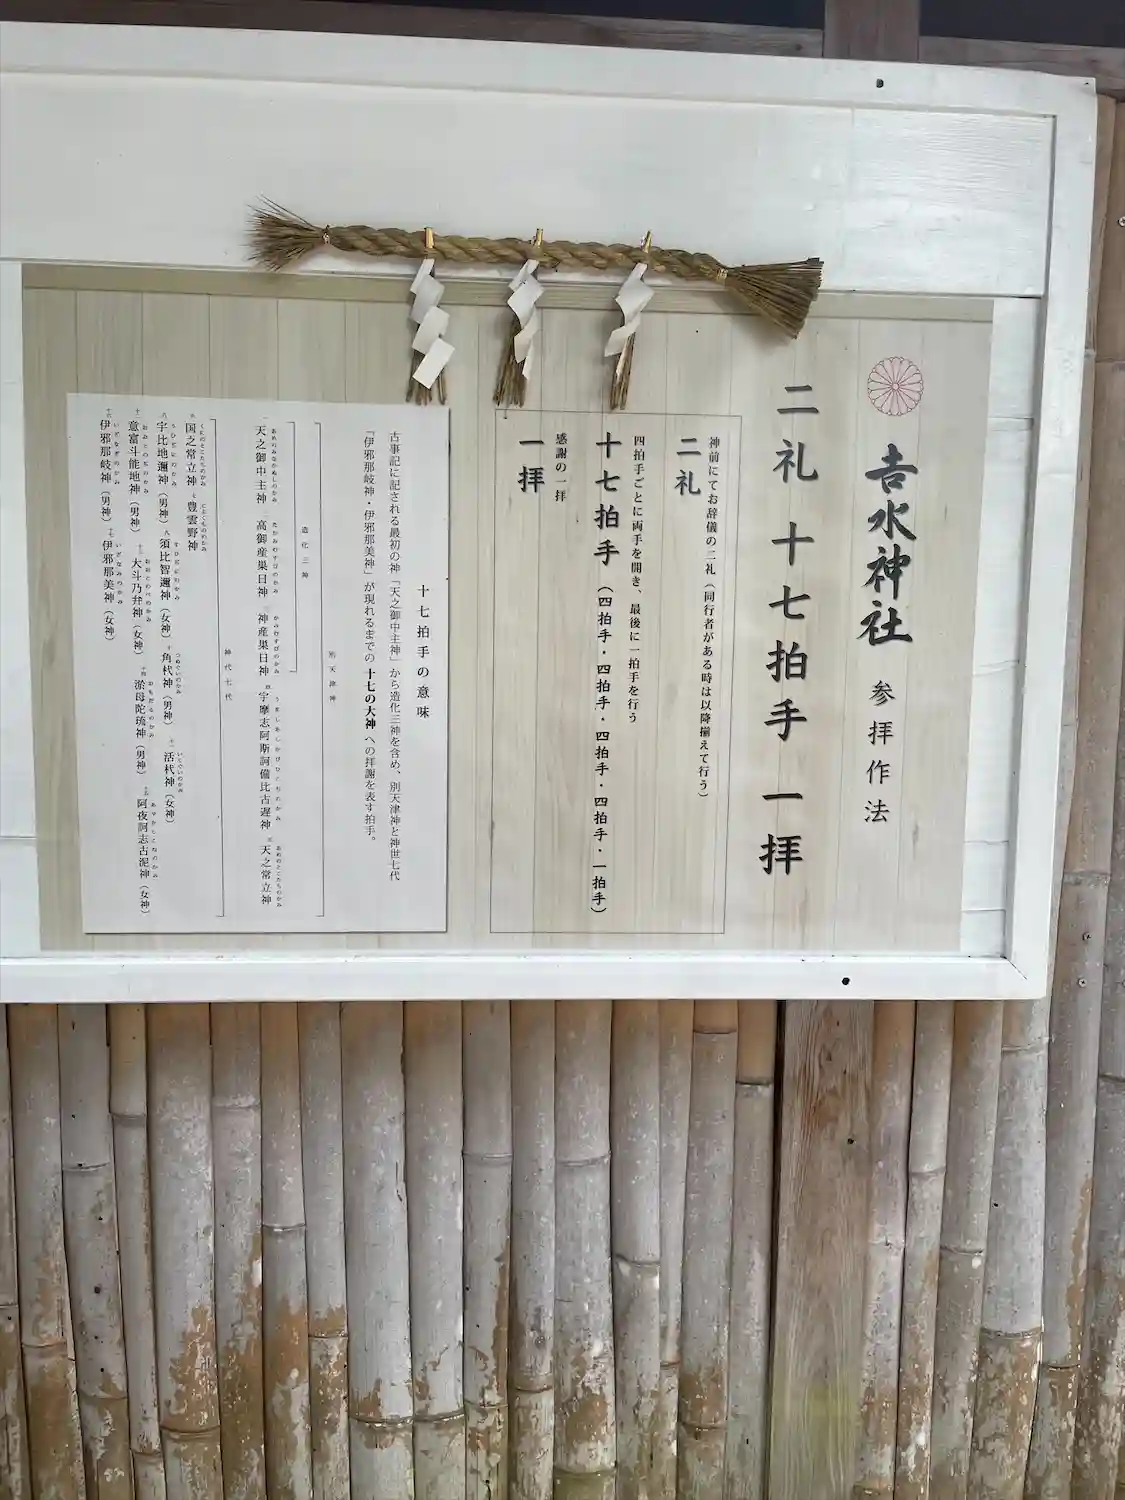 吉水神社 参拝作法
二礼 十七拍手 一拝
神前にてお辞儀の二礼（同行者がある時は以降揃えて行う）
二礼
四拍手ごとに両手を開き、最後に一拍手を行う
十七拍手（四拍手・四拍手・四拍手・四拍手・一拍手）
感謝の一拝
一拝
十七拍手の意味
古事記に記される最初の神「天之御中主神」から造化三神を含め、別天津神と神世七代
「伊邪那岐神・伊邪那美神」が現れるまでの十七の大神への拝謝を表す拍手。
別天津神
造化三神
一 天之御中主神 二 高御産巣日神 三 神産巣日神 四 宇摩志阿斯訶備比古遅神 五 天之常立神
神代七代
六 国之常立神 七 豊雲野神
八 宇比地邇神（男神） 九 須比智邇神（女神） 十 角杙神（男神） 十一 活杙神（女神）
十二 意富斗能地神（男神） 十三 大斗乃弁神（女神） 十四 淤母陀琉神（男神） 十五 阿夜訶志古泥神（女神）
十六 伊邪那岐神（男神） 十七 伊邪那美神（女神）